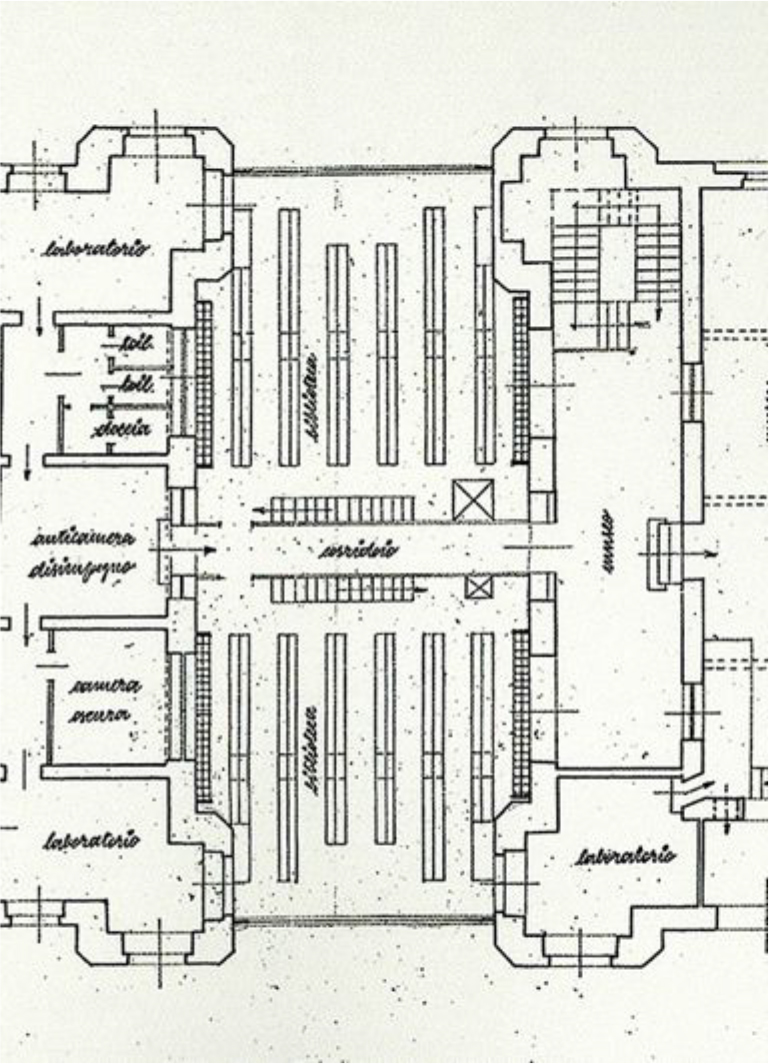 laboratorio
toil.
toil.
doccia
biblioteca
anticamera
disimpegno
corridoio
museo
camera
oscura
biblioteca
laboratorio
laboratorio